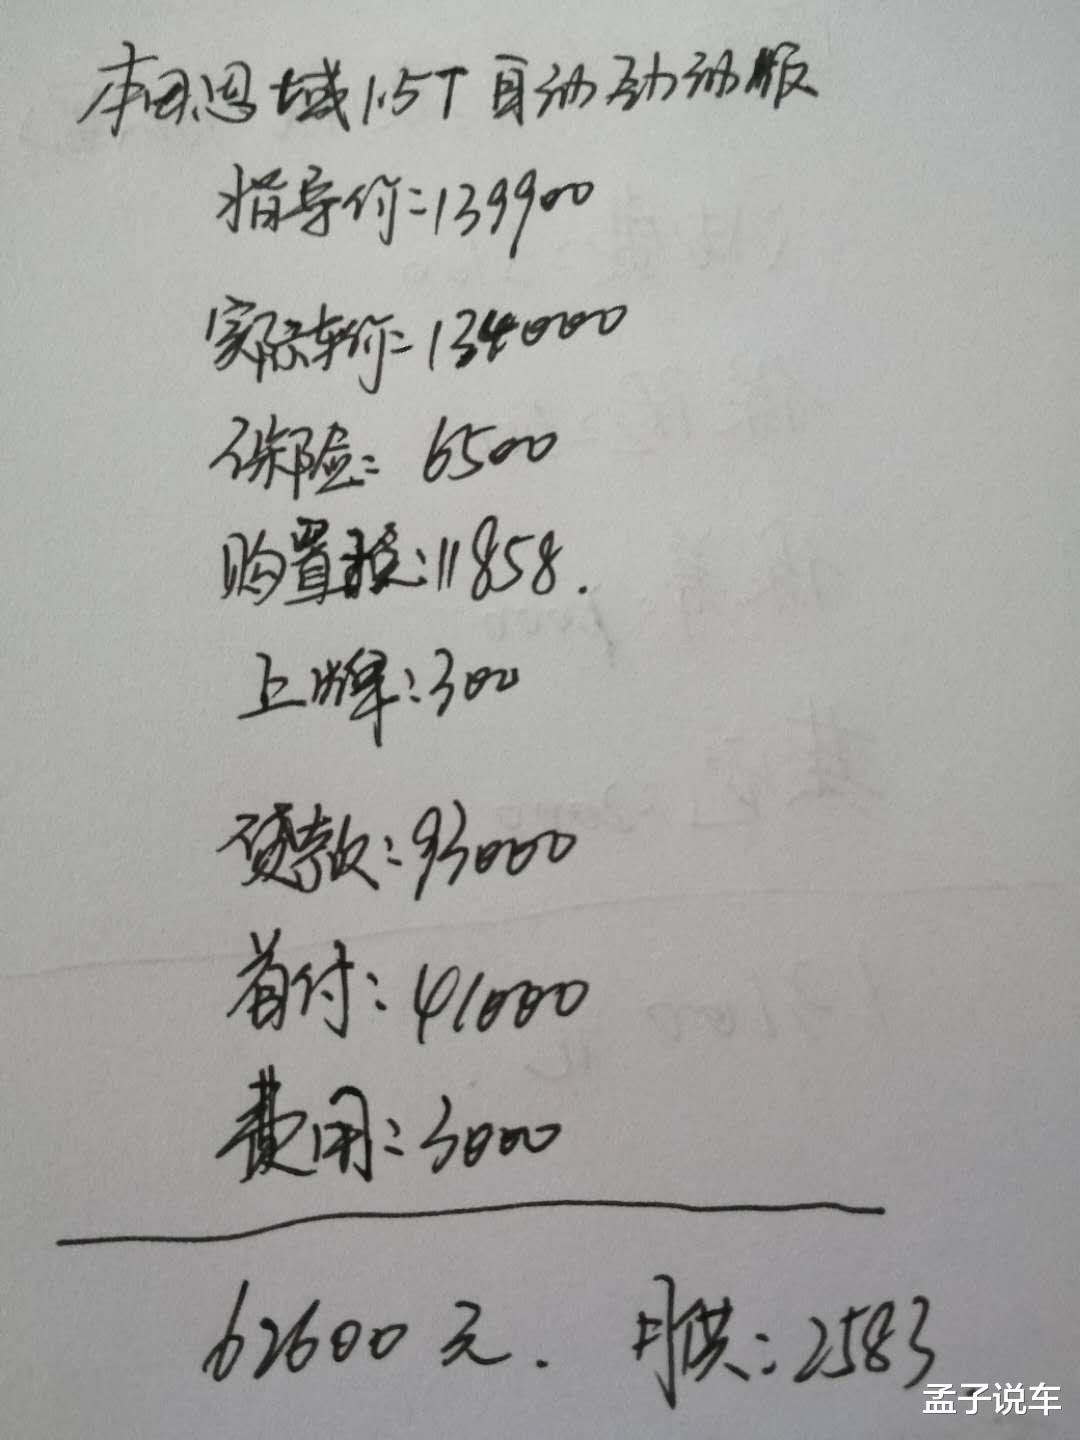 本田思域1.5T自动劲动版
指导价:139900
实际车价:134000
保险:6500
购置税:11858.
上牌:300
贷款:93000
首付:41000
费用:3000
62600元. 月供:2583
孟子说车